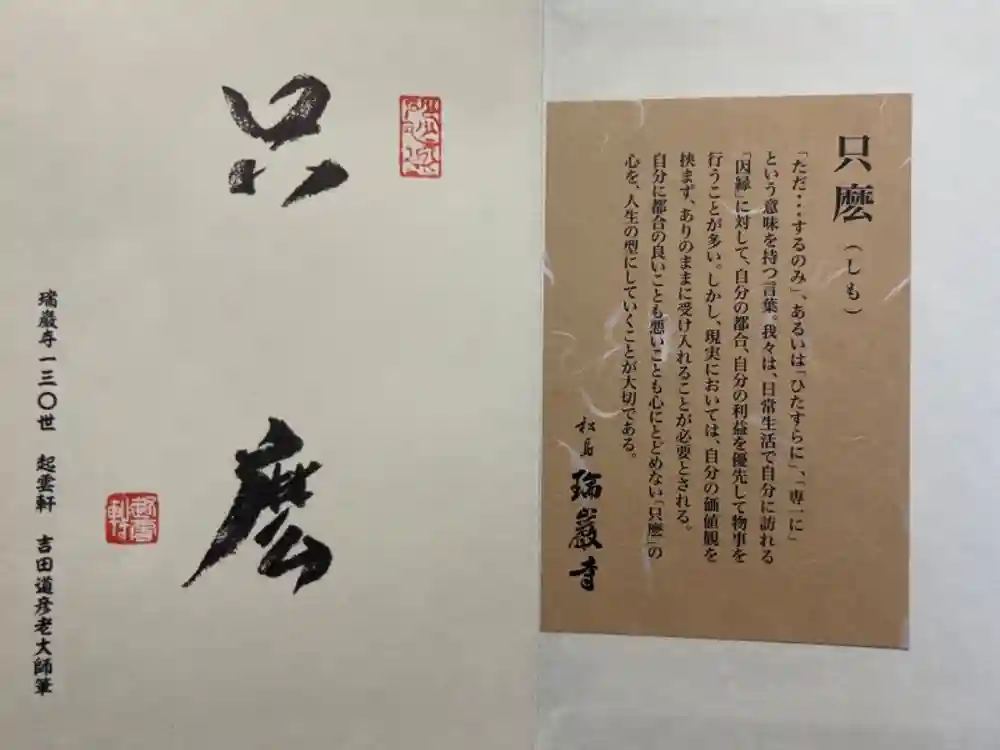 只麼
瑞巌寺一三〇世　起雲軒　吉田道彦老大師筆
起雲
軒
只麼（しも）
「ただ・・・するのみ」、あるいは「ひたすらに」、「専一に」
という意味を持つ言葉。我々は、日常生活で自分に訪れる
「因縁」に対して、自分の都合、自分の利益を優先して物事を
行うことが多い。しかし、現実においては、自分の価値観を
挟まず、ありのままに受け入れることが必要とされる。
自分に都合の良いことも悪いことも心にとどめない「只麼」の
心を、人生の型にしていくことが大切である。
松島　瑞巌寺